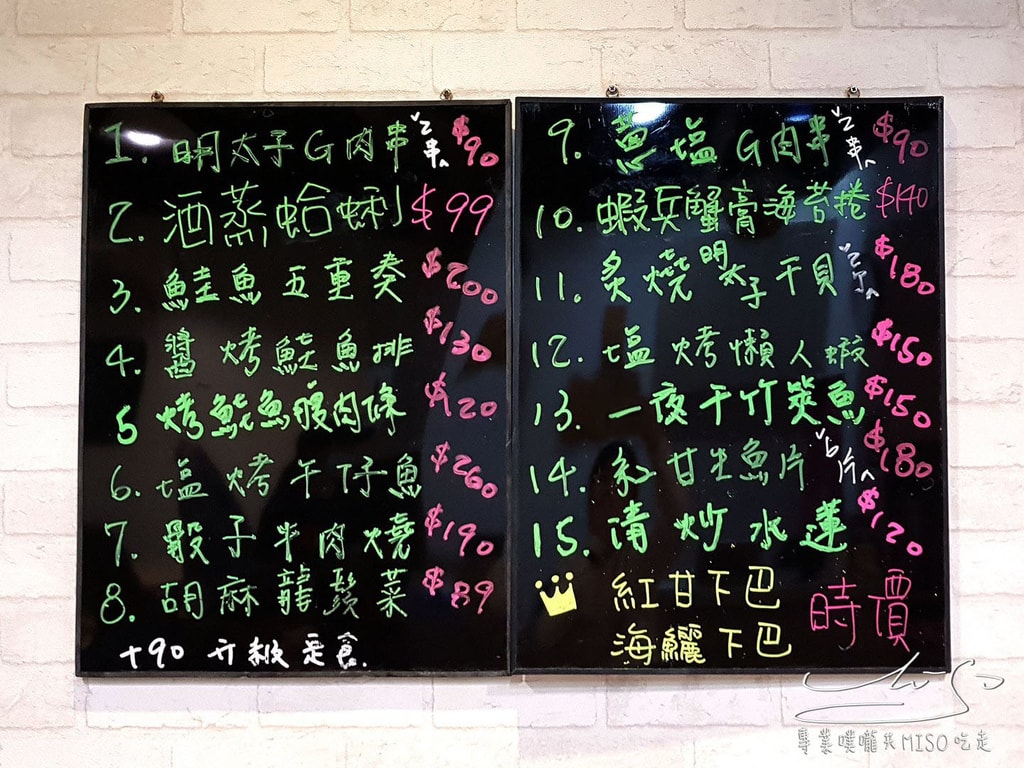 1. 明太子G肉串 ˇ2串^ $90
2. 酒蒸蛤蜊 $99
3. 鮭魚五重奏 $200
4. 醬烤魟魚排 $130
5 烤魷魚腹肉條 $120
6. 塩烤午仔魚 $260
7. 骰子牛肉燒 $190
8. 胡麻龍鬚菜 $89
+90 升級定食
9. 蔥塩G肉串 ˇ2串^ $90
10. 蝦兵蟹膏海苔捲 $140
11. 炙燒明太子干貝 ˇ2介^ $180
12. 塩烤懶人蝦 $150
13. 一夜干竹筴魚 $150
14. 紅甘生魚片 ˇ6片^ $180
15. 清炒水蓮 $120
紅甘下巴
海鱺下巴
時價
MiSo
畢業噗嚨共MISO吃走